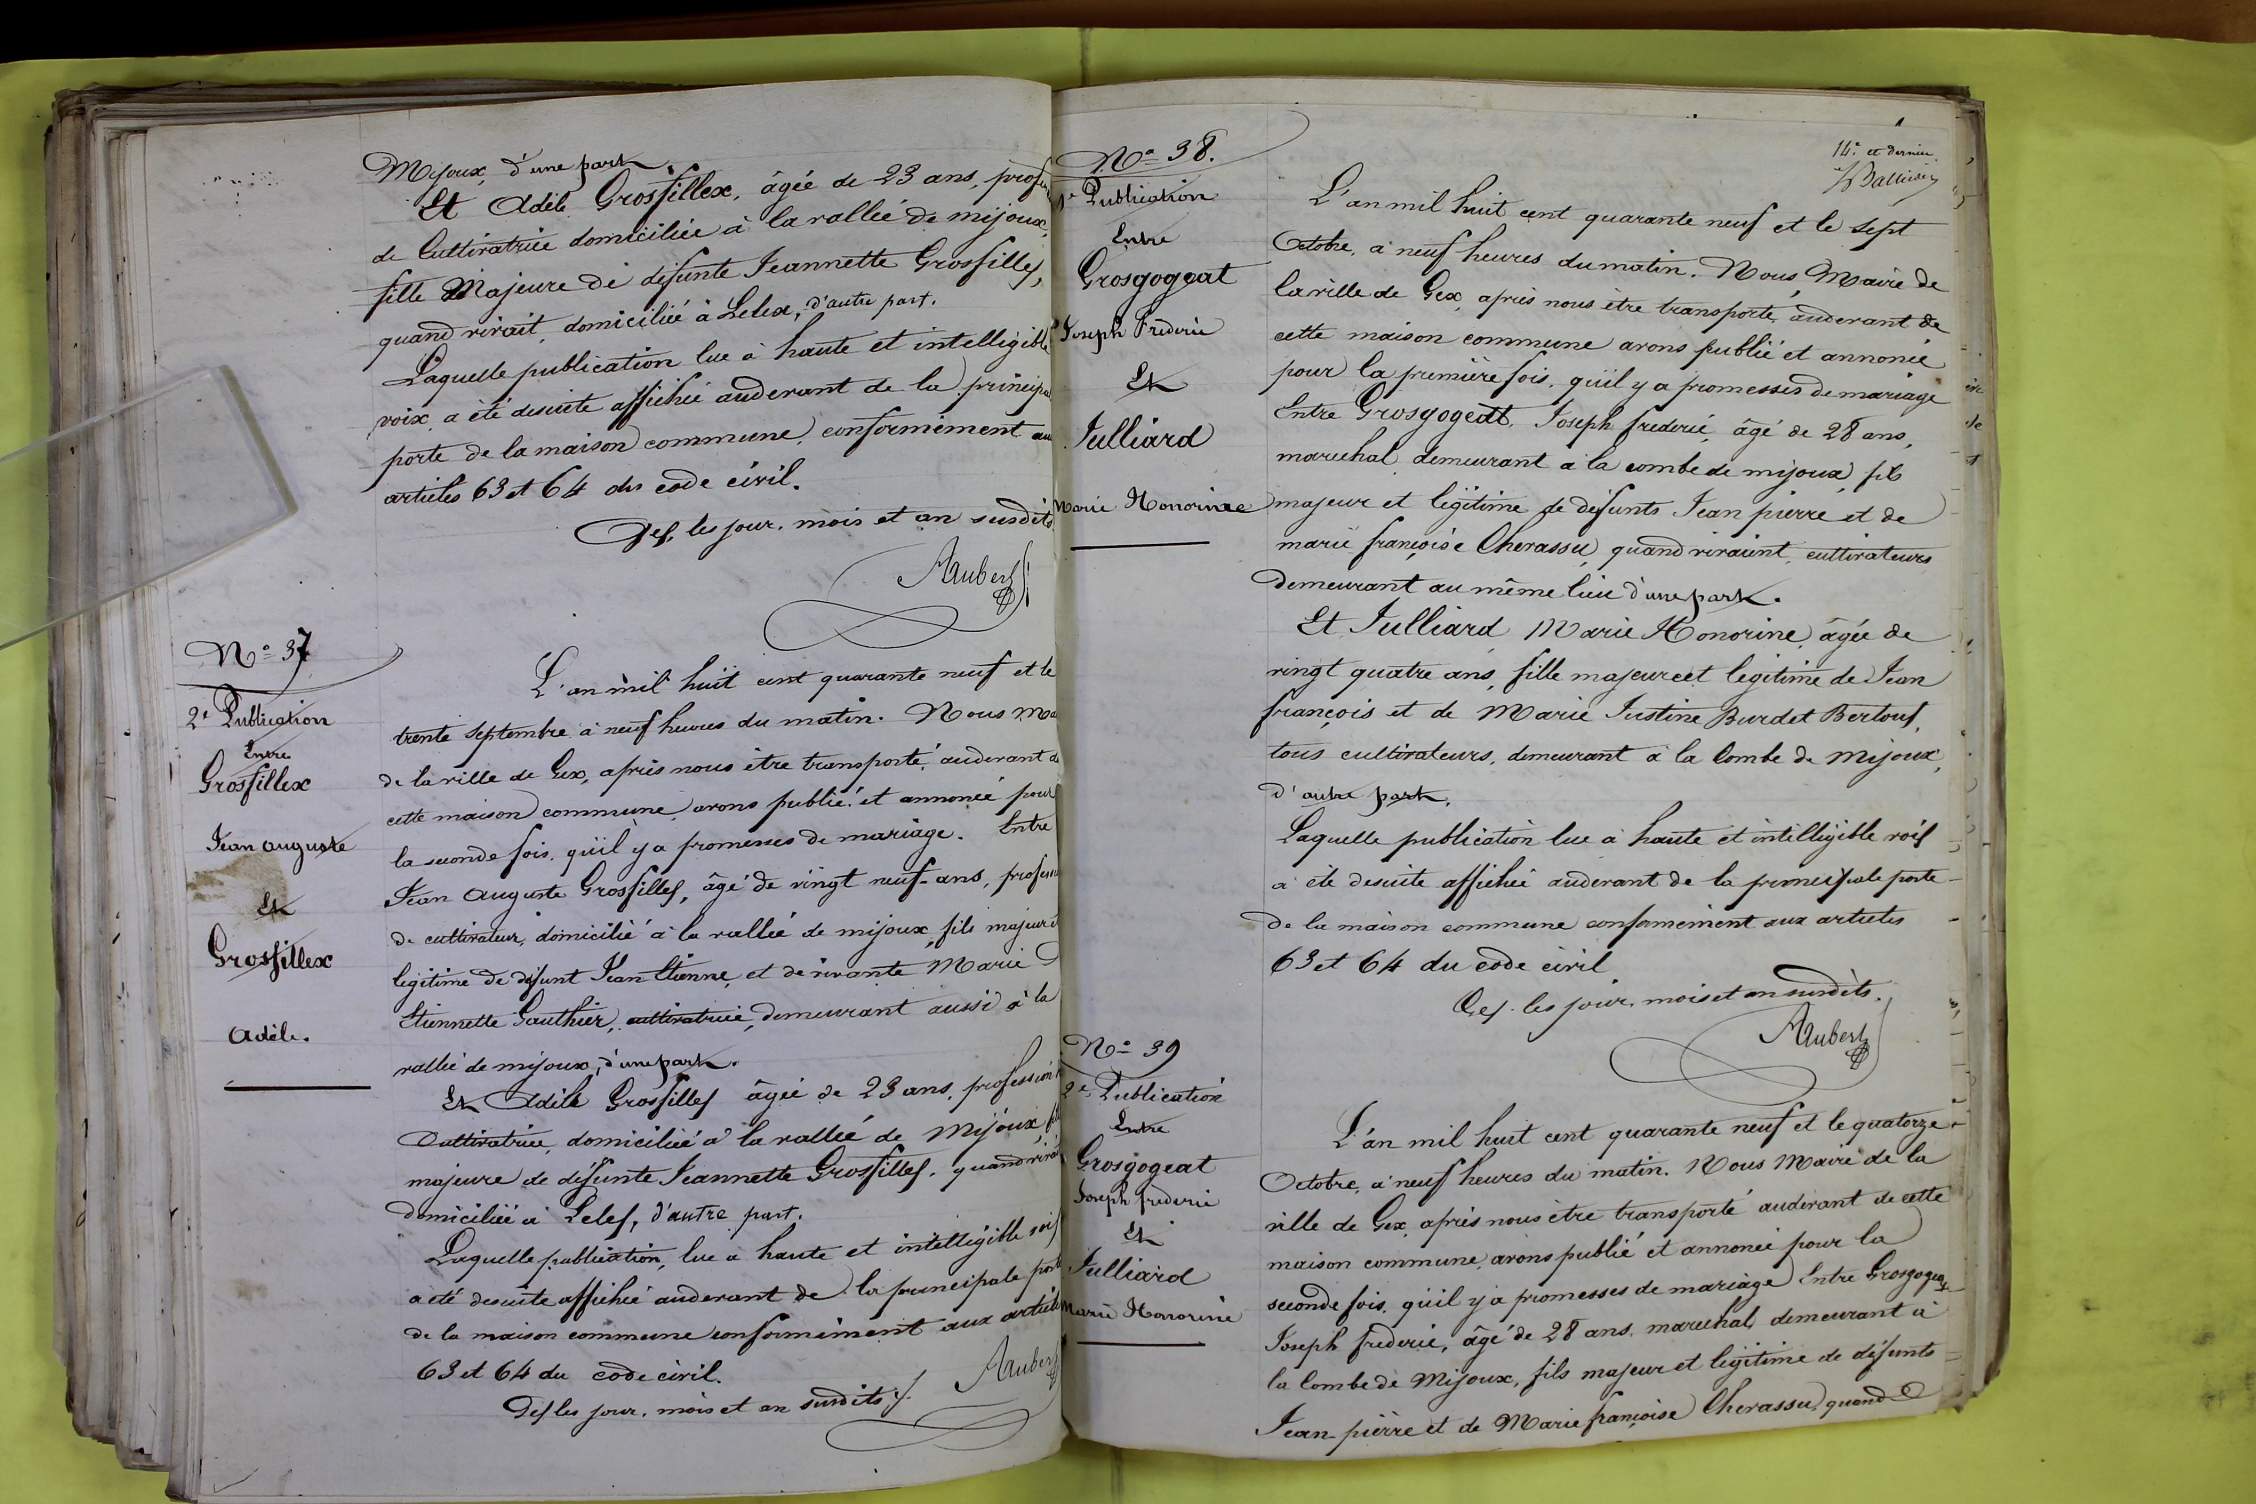 Mijoux, d'une part.
Et Adèle Grosfillex, âgée de 23 ans, profession
de Cultivatrice domiciliée à la vallée de mijoux,
fille Majeure de défunte Jeannette Grosfillex,
quand vivait, domiciliée à Lelex, d'autre part.
Laquelle publication lue à haute et intelligible
voix, a été desuite affichée audevant de la principale
porte de la maison commune, conformément aux
articles 63 et 64 du code civil.
Gex, les jour, mois et an susdits
Aubert
N° 37
2e Publication
Entre
Grosfillex
Jean auguste
Et
Grosfillex
Adèle.
L'an mil huit cent quarante neuf et le
trente Septembre à neuf heures du matin. Nous Maire
de la ville de Gex, après nous être transporté, audevant de
cette maison commune, avons publié et annoncé pour
la seconde fois, qu'il y a promesses de mariage. Entre
Jean Auguste Grosfillex, âgé de vingt neuf ans, profession
de cultivateur, domicilié à la vallée de mijoux, fils majeur et
legitime de défunt Jean Etienne, et de vivante Marie
Etiennette Gauthier, cultivatrice, demeurant aussi à la
vallée de mijoux, d'une part.
Et Adèle Grosfillex âgée de 23 ans, profession de
Cultivatrice, domiciliée à la vallée de Mijoux, fille
majeure de défunte Jeannette Grosfillex, quand vivait
domiciliée à Lelex, d'autre part.
Laquelle publication, lue à haute et intelligible voix
a été desuite affichée audevant de la principale porte
de la maison commune conformément aux articles
63 et 64 du code civil.
Gex les jour, mois et an susdits.
Aubert
N° 38.
1e Publication
Entre
Grosgogeat
Joseph Frederic
Et
Julliard
Marie Honorine
14e et dernier
L'an mil huit cent quarante neuf et le sept
Octobre, à neuf heures du matin. Nous, Maire de
la ville de Gex, après nous être transporté, audevant de
cette maison commune avons publié et annoncé
pour la première fois, qu'il y a promesses de mariage
Entre Grosgogeat, Joseph frederic, âgé de 28 ans,
marechal, demeurant à la combe de mijoux, fils
majeur et légitime de défunts Jean pierre et de
marie françoise Chevassu, quand vivaient, cultivateurs
demeurant au même lieu d'une part.
Et Julliard, Marie Honorine, âgée de
vingt quatre ans, fille majeure et legitime de Jean
françois et de Marie Justine Burdet Bertouf,
tous cultivateurs, demeurant à la Combe de Mijoux,
d'autre part.
Laquelle publication lue à haute et intelligible voix
a été desuite affichée audevant de la principale porte
de la maison commune conformément aux articles
63 et 64 du code civil
Gex. les jour, mois et an susdits.
Aubert
N° 39
2e Publication
Entre
Grosgogeat
Joseph frederic
Et
Julliard
Marie Honorine
L'an mil huit cent quarante neuf et le quatorze
Octobre, à neuf heures du matin. Nous Maire de la
ville de Gex, après nous être transporté audevant de cette
maison commune, avons publié et annoncé pour la
seconde fois, qu'il y a promesses de mariage Entre Grosgogeat
Joseph frederic, âgé de 28 ans, marechal, demeurant à
la Combe de Mijoux, fils majeur et légitime de défunts
Jean pierre et de Marie françoise Chevassu, quand